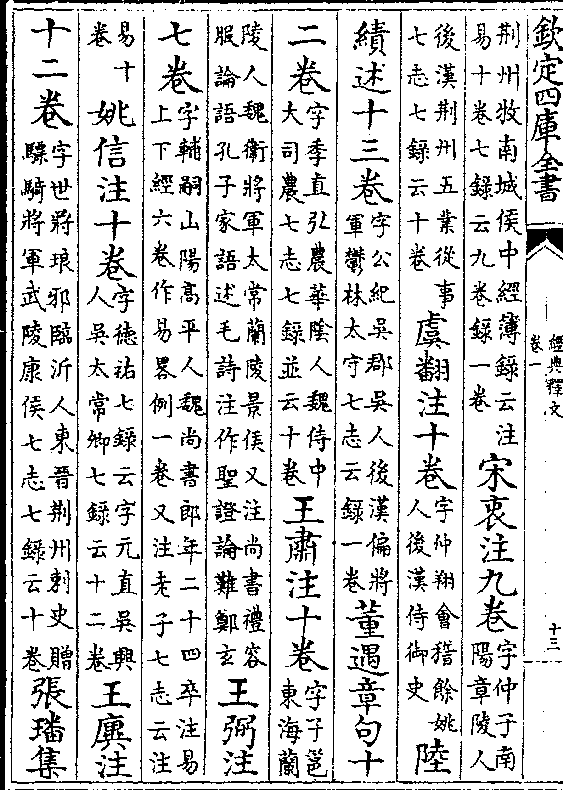 欽定四庫全書
經典釋文
卷一
十三
荆州牧南城侯中經簿録云注
易十卷七録云九卷録一卷
宋衷注九卷
字仲子南
陽章陵人
後漢荆州五業從事
七志七録云十卷
虞翻注十卷
字仲翔會稽餘姚
人後漢侍御史
陸
績述十三卷
字公紀吳郡吳人後漢偏將
軍鬱林太守七志云録一卷
董遇章句十
二卷
字季直弘農華陰人魏侍中
大司農七志七録並云十卷
王肅注十卷
字子邕
東海蘭
陵人魏衛將軍太常蘭陵景侯又注尚書禮容
服論語孔子家語述毛詩注作聖證論難鄭玄
王弼注
七卷
字輔嗣山陽高平人魏尚書郎年二十四卒注易
上下經六卷作易畧例一卷又注老子七志云注
易十
卷
姚信注十卷
字德祐七録云字元直吳興
人吳太常卿七録云十二卷
王廙注
十二卷
字世將琅邪臨沂人東晉荆州刺史贈
驃騎將軍武陵康侯七志七録云十卷
張璠集